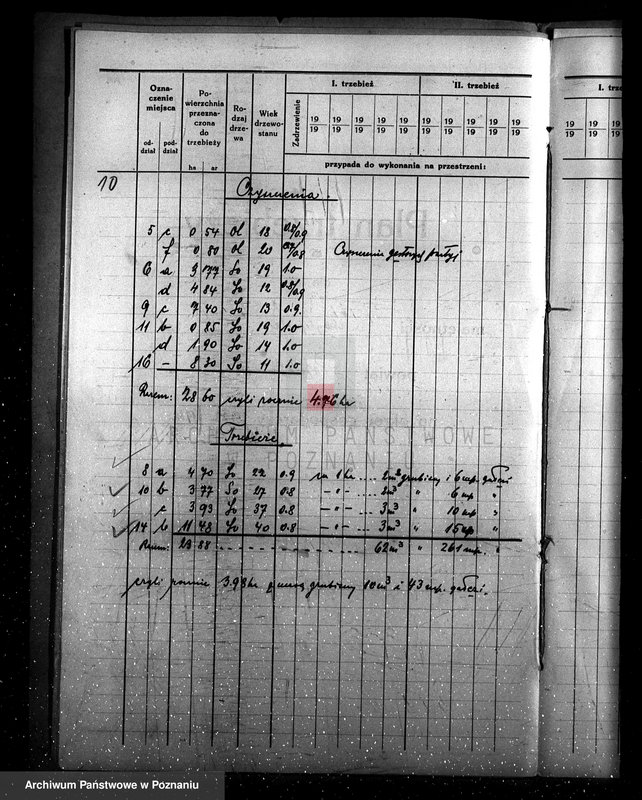 Ozna-
czenie
miejsca
Po-
wierzchnia
przezna-
czona
do
trzebieży
Ro-
dzaj
drze-
wa
Wiek
drzewo-
stanu
Zadrzewienie
I. trzebież
II. trzebież
I. trz
od-
dział
pod-
dział
19 19 19 19 19 19 19 19 19 19
19 19 19 19 19 19 19 19 19 19
ha ar
przypada do wykonania na przestrzeni:
10
Czyszczenia.
5 c 0 54 Ol 18 0.8/0.9
f 0 80 Ol 20
6 a 9 77 So 19 1.0
d 4 84 So 12 0.8/0.9
9 c 7 40 So 13 0.9.
11 b 0 85 So 19 1.0
d 1 90 So 14 1.0
16 - 8 30 So 11 1.0
Razem: 28 60 czyli rocznie 4.76 ha
ARCHIWUM PAŃSTWOWE
W POZNANIU
Trzebieże
8 a 4 70 So 22 0.9 na 1 ha .... 2m³ grubizny i 6 mp. gałęzi
10 b 3 77 So 27 0.8 -"- .... 2m³ " 6 mp "
c 3 93 So 37 0.8 -"- .... 3m³ " 10 mp "
14 b 11 48 So 40 0.8 -"- .... 3m³ " 15 mp "
Razem: 23 88 .... 62m³ " 261 mp. "
czyli rocznie 3.98 ha z masą grubizny 10m³ i 43 mp. gałęzi.
Archiwum Państwowe w Poznaniu